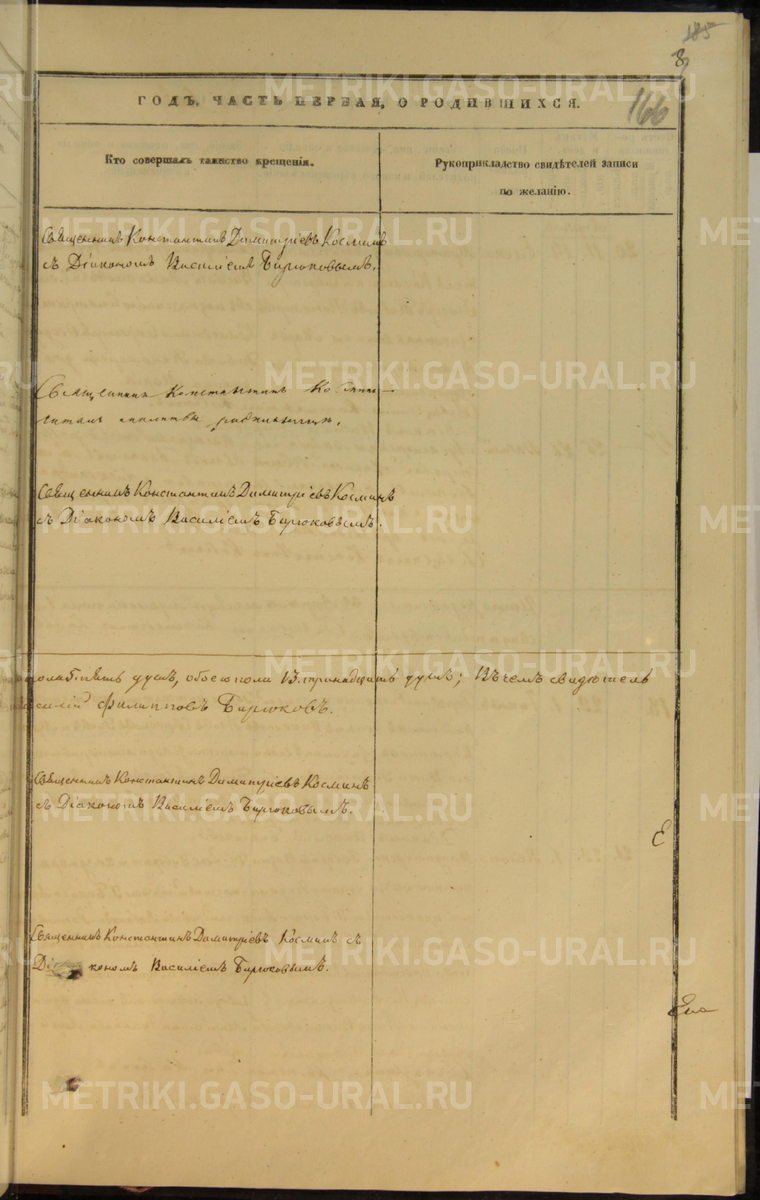 185
8
166
ГОДЪ, ЧАСТЬ ПЕРВАЯ, О РОДИВШИХСЯ.
Кто совершалъ таинство крещенія.
Рукоприкладство свидѣтелей записи
по желанію.
Священникъ Константинъ Димитріевъ Косминъ
съ Діакономъ Василіемъ Бирюковымъ.
Священникъ Константинъ
молитвы
Священникъ Константинъ Димитріевъ Косминъ
съ Діакономъ Василіемъ Бирюковымъ.
пола 5. пять душъ, обоего пола 13. тринадцать душъ; Въ чемъ свидѣтель
силій Филипповъ Бирюковъ.
Священникъ Константинъ Димитріевъ Косминъ
съ Діакономъ Василіемъ Бирюковымъ.
Священникъ Константинъ Димитріевъ Косминъ съ
Ді кономъ Василіемъ Бирюковымъ.
METRIKI.GASO-URAL.RU